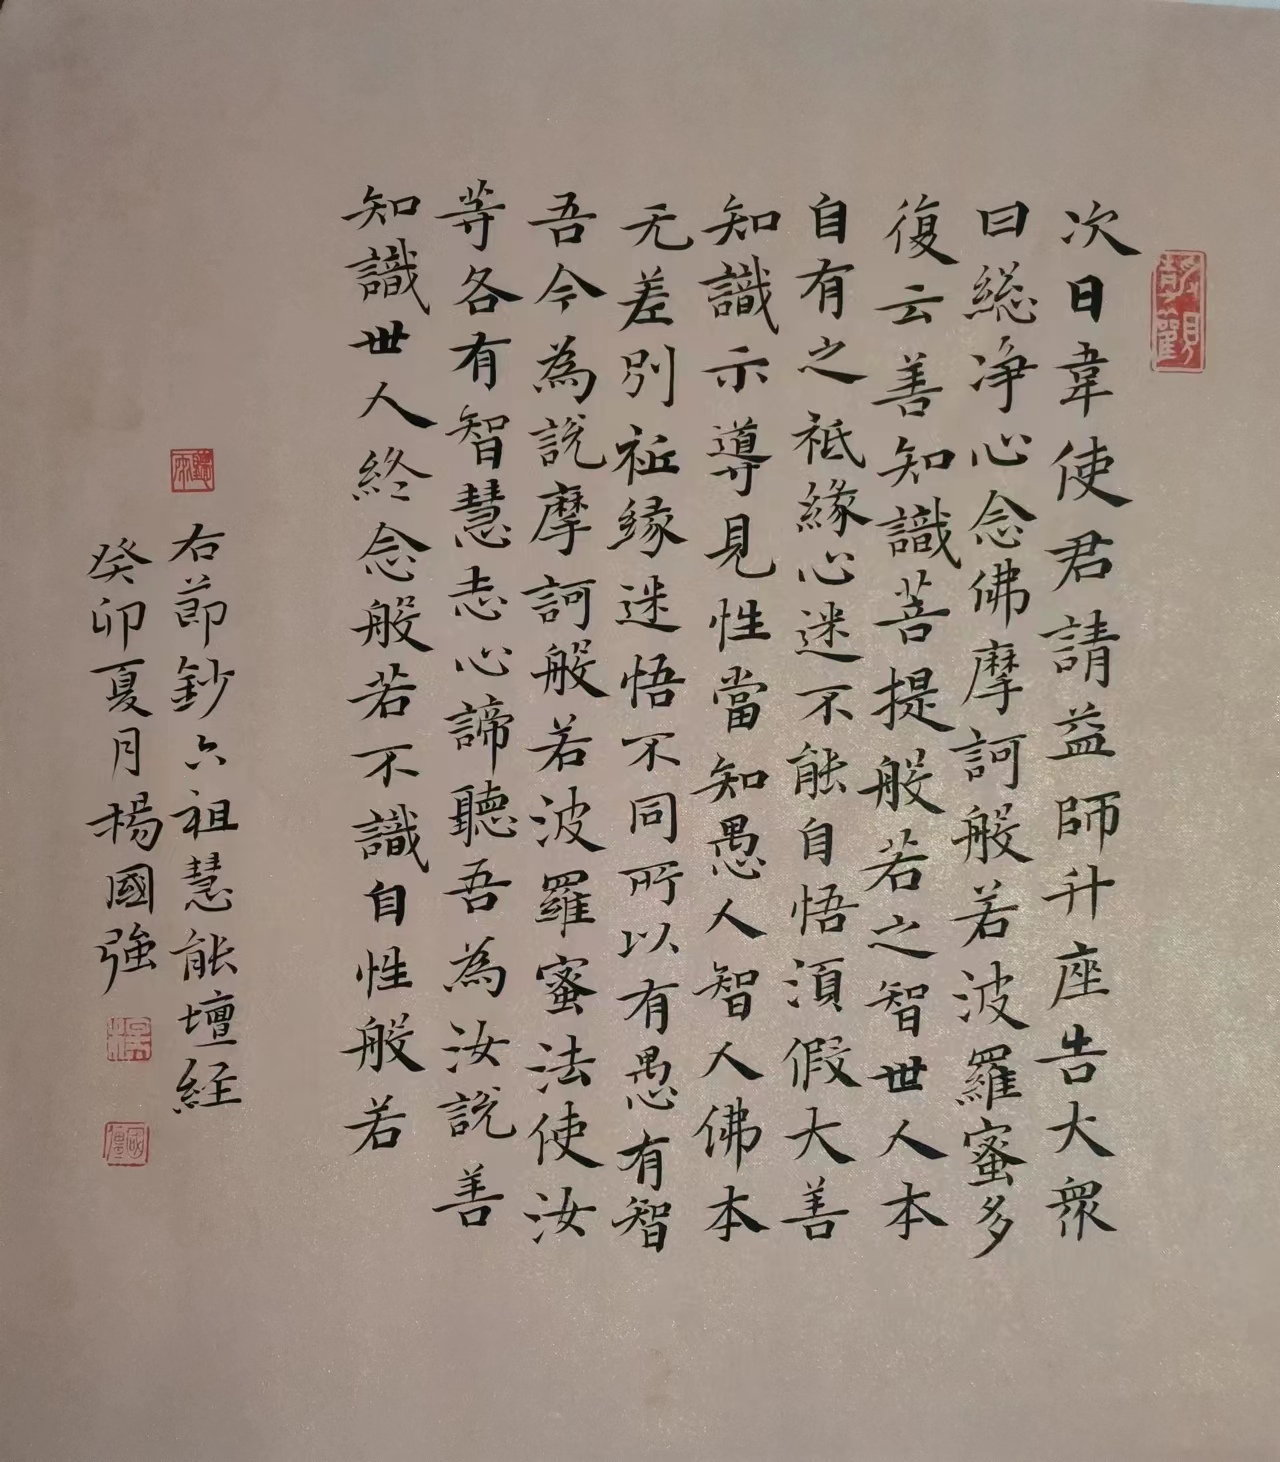 靜觀
次日韋使君請益師升座告大眾
曰総淨心念佛摩訶般若波羅蜜多
復云善知識菩提般若之智世人本
自有之祗緣心迷不能自悟須假大善
知識示導見性當知愚人智人佛本
无差別祗緣迷悟不同所以有愚有智
吾今為說摩訶般若波羅蜜法使汝
等各有智慧志心諦聽吾為汝說善
知識世人終念般若不識自性般若
右節鈔六祖慧能壇経
癸卯夏月楊國強